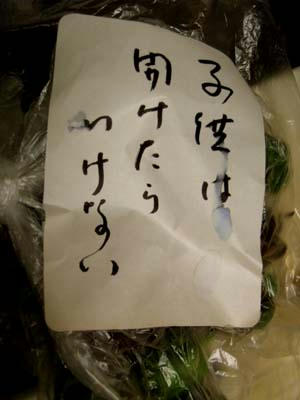 子供は
開けたら
いけない